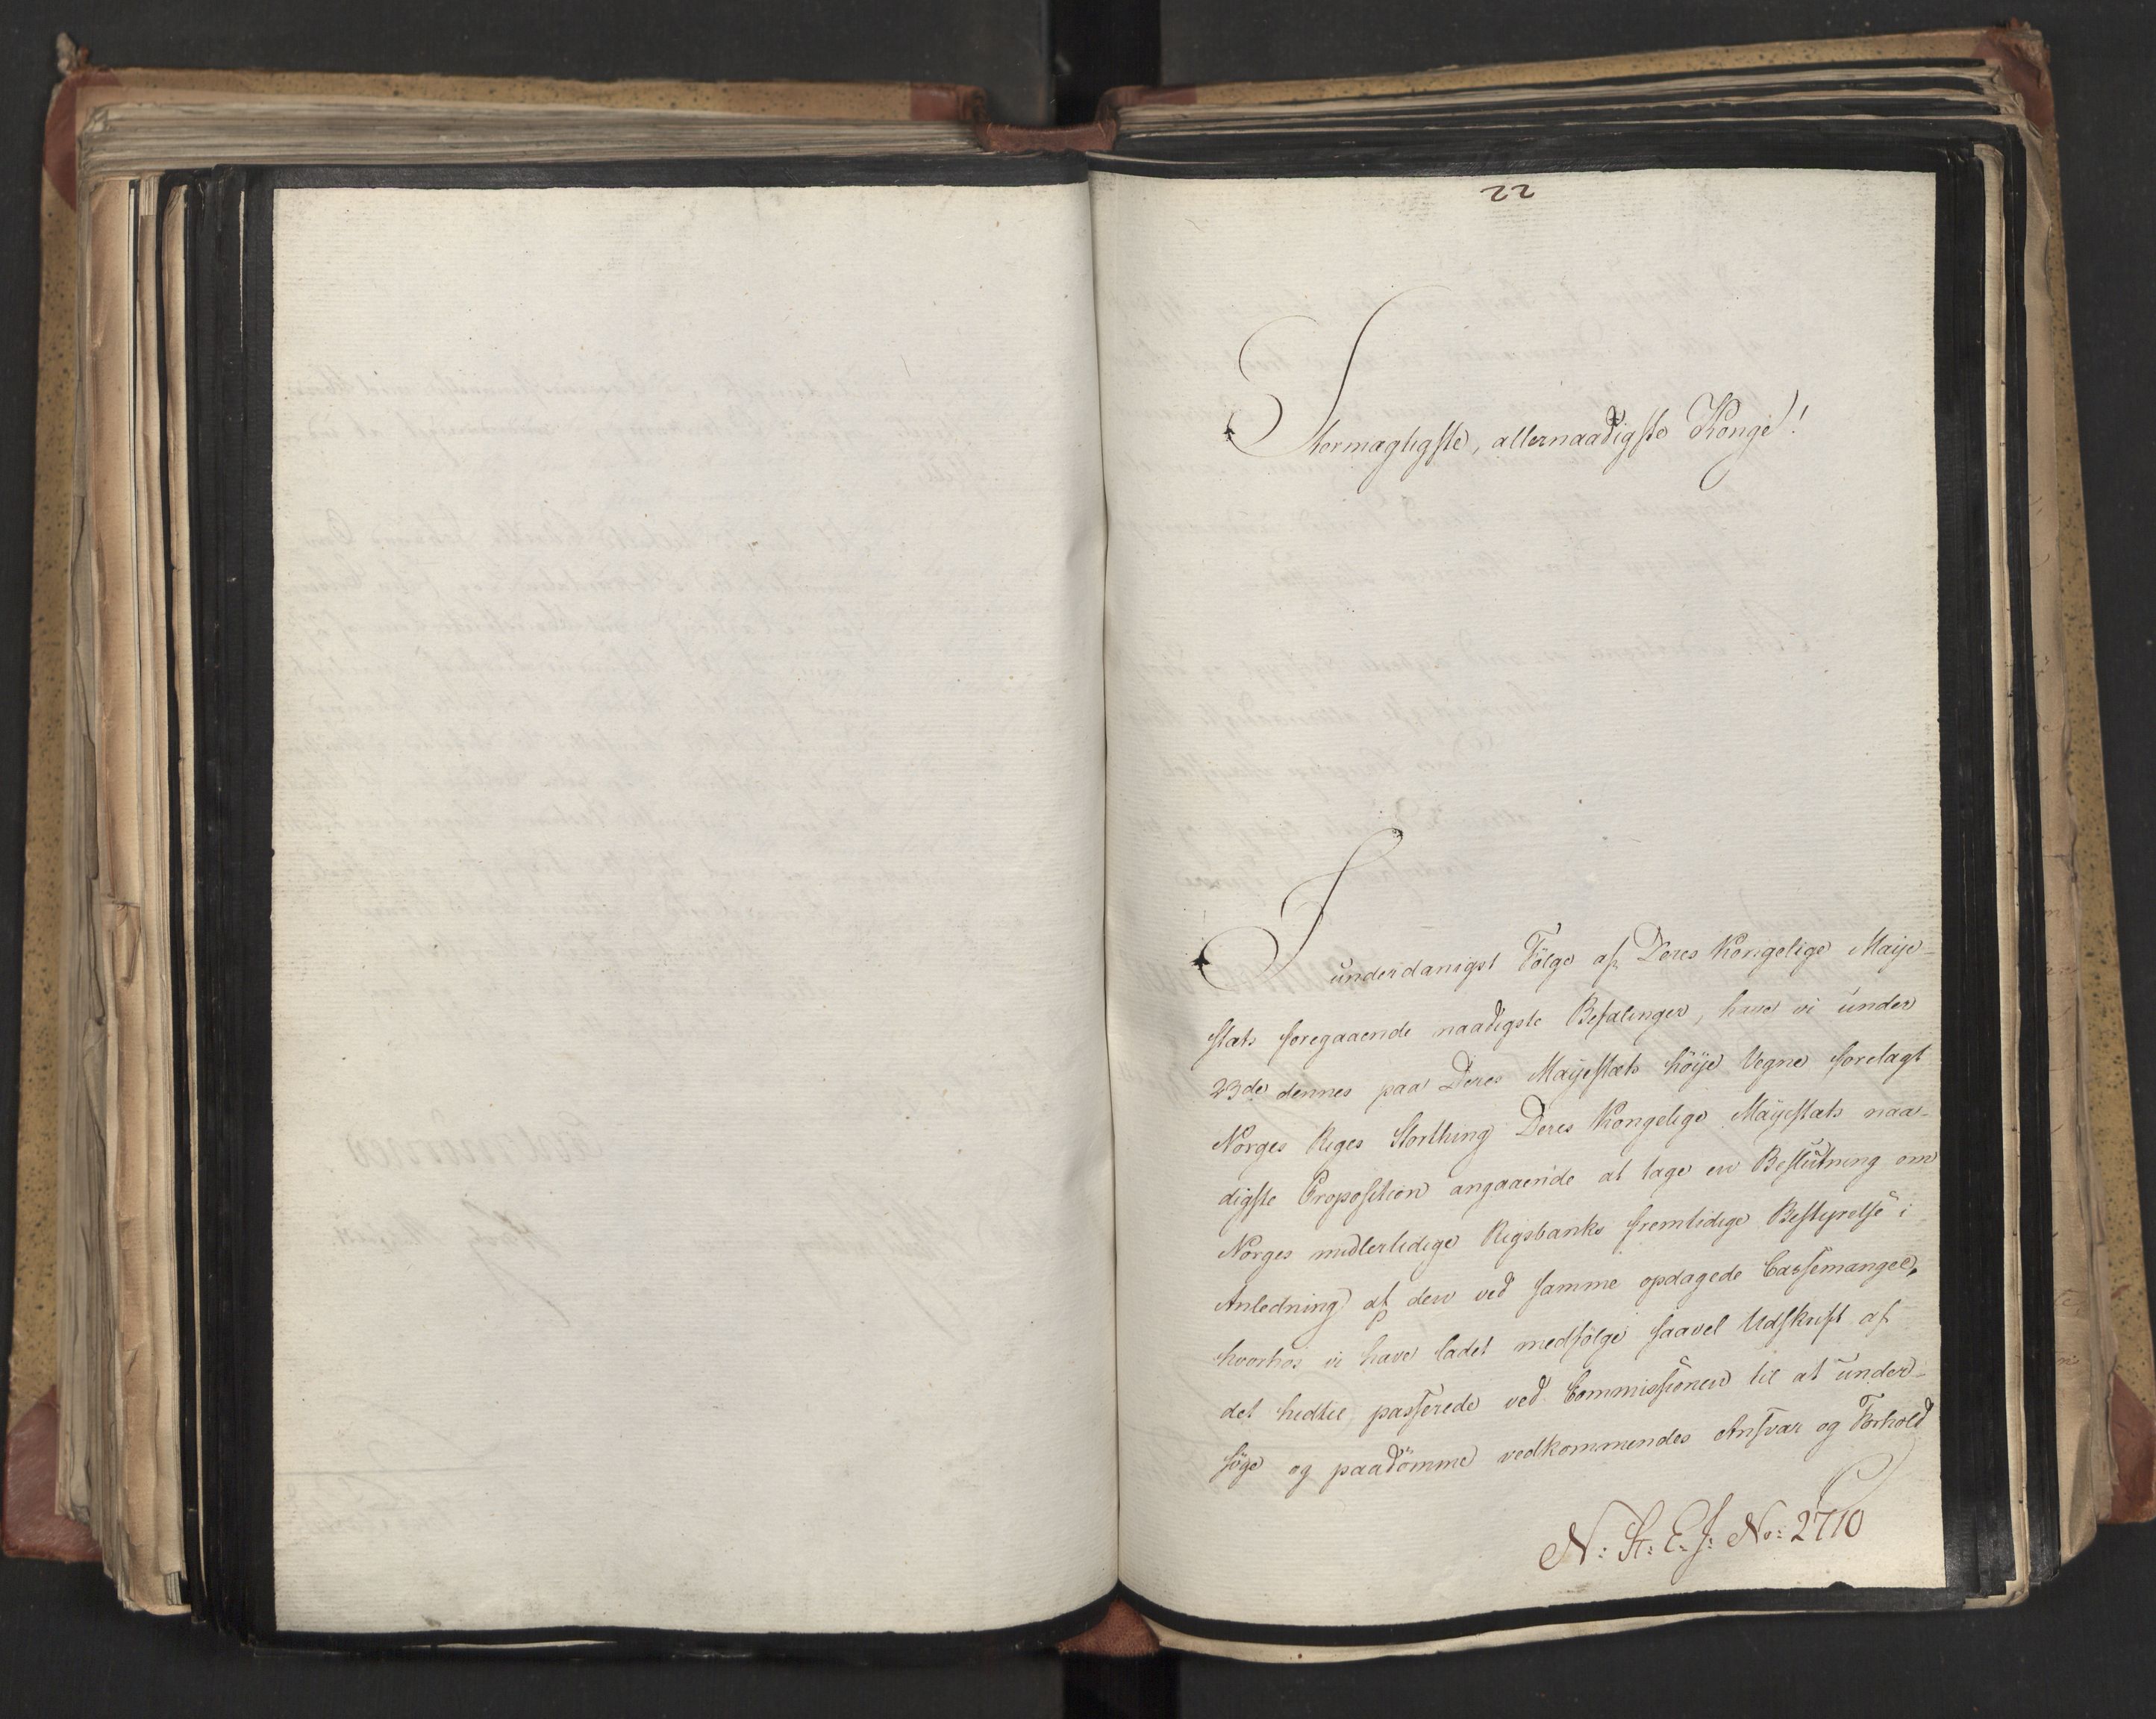 22
Stormægtigste, allernaadigste Konge!
I
underdanigst Fölge af Deres Kongelige Maije-
stæts foregaaende naadigste Befalinger, have vi under
23de dennes paa Deres Maijestæts höije Vegne forelagt
Norges Riges Storthing Deres Kongelige Maijestæts naa-
digste Proposition angaaende at tage en Beslutning om
Norges midlertidige Rigsbanks fremtidige Bestyrelse i
Anledning af den ved samme opdagede Cassemangel,
hvorhos vi have ladet medfölge saavel Udskrift af
det hidtil passerede ved Commissionen til at under-
söge og paadömme vedkommendes Ansvar og Forhold
N: St: E: J: No: 2710